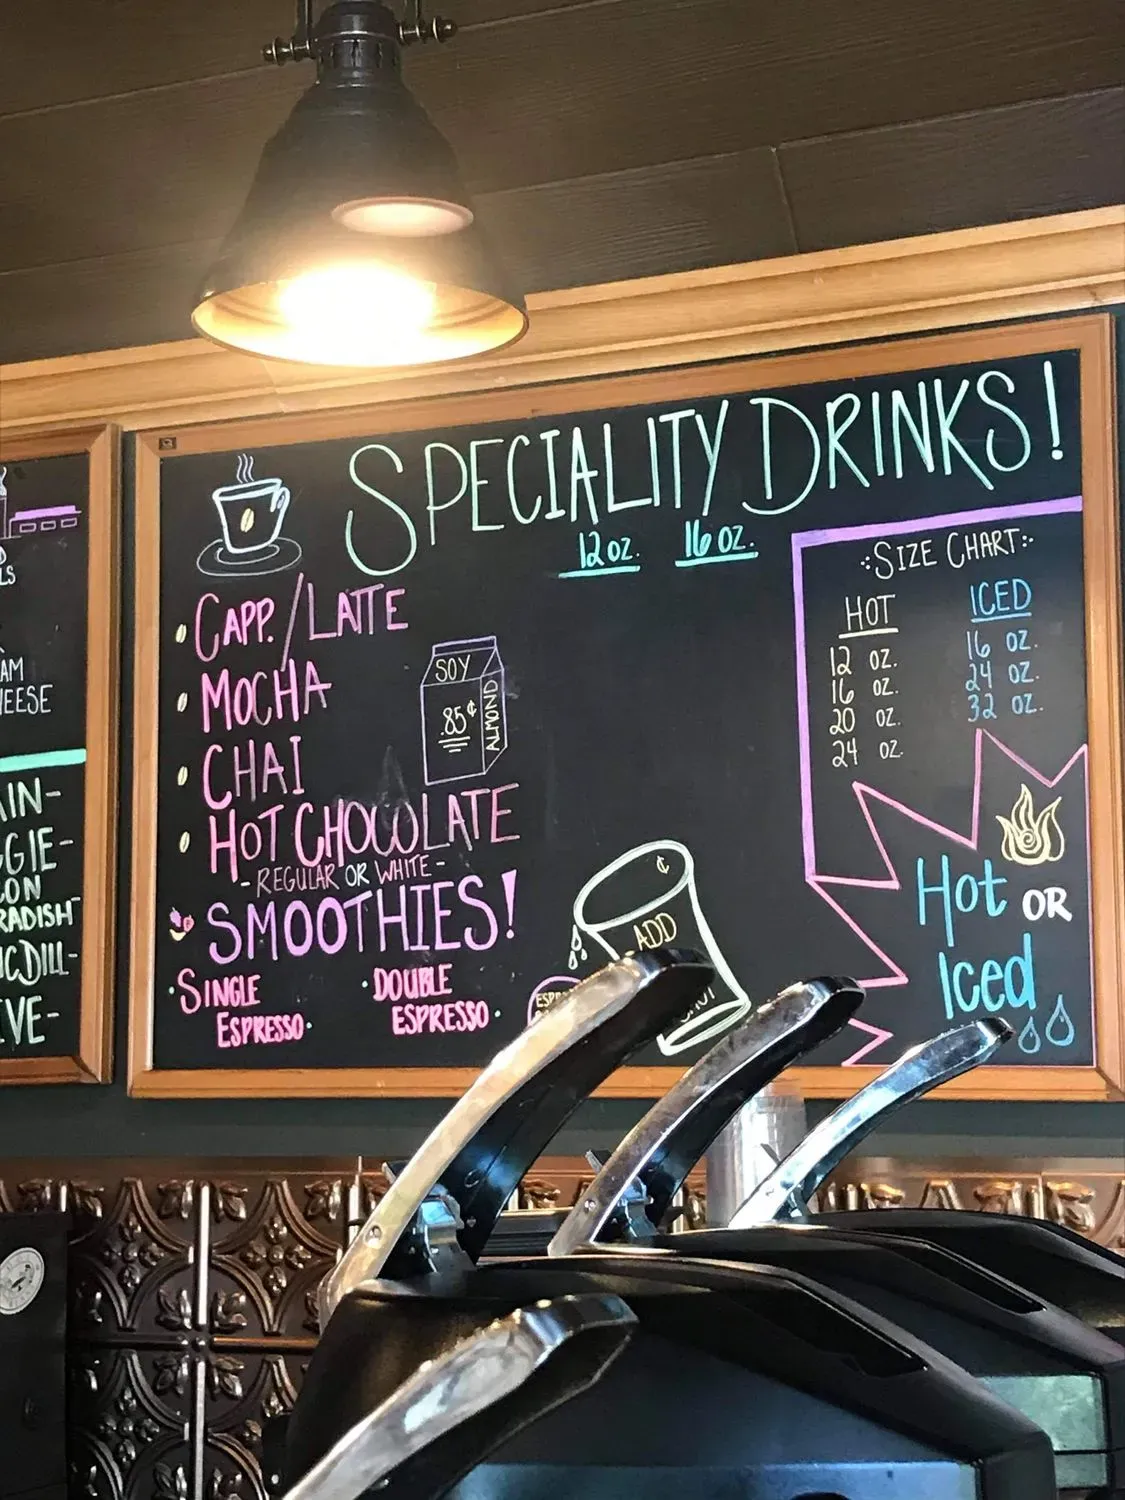 SPECIALITY DRINKS!
12 OZ. 16 OZ.
CAPP. / LATTE
MOCHA
CHAI
HOT CHOCOLATE
- REGULAR OR WHITE -
SMOOTHIES!
SINGLE
ESPRESSO
DOUBLE
ESPRESSO
SOY
.85¢
ALMOND
¢
ADD
SIZE CHART
HOT ICED
12 OZ. 16 OZ.
16 OZ. 24 OZ.
20 OZ. 32 OZ.
24 OZ.
Hot OR
Iced